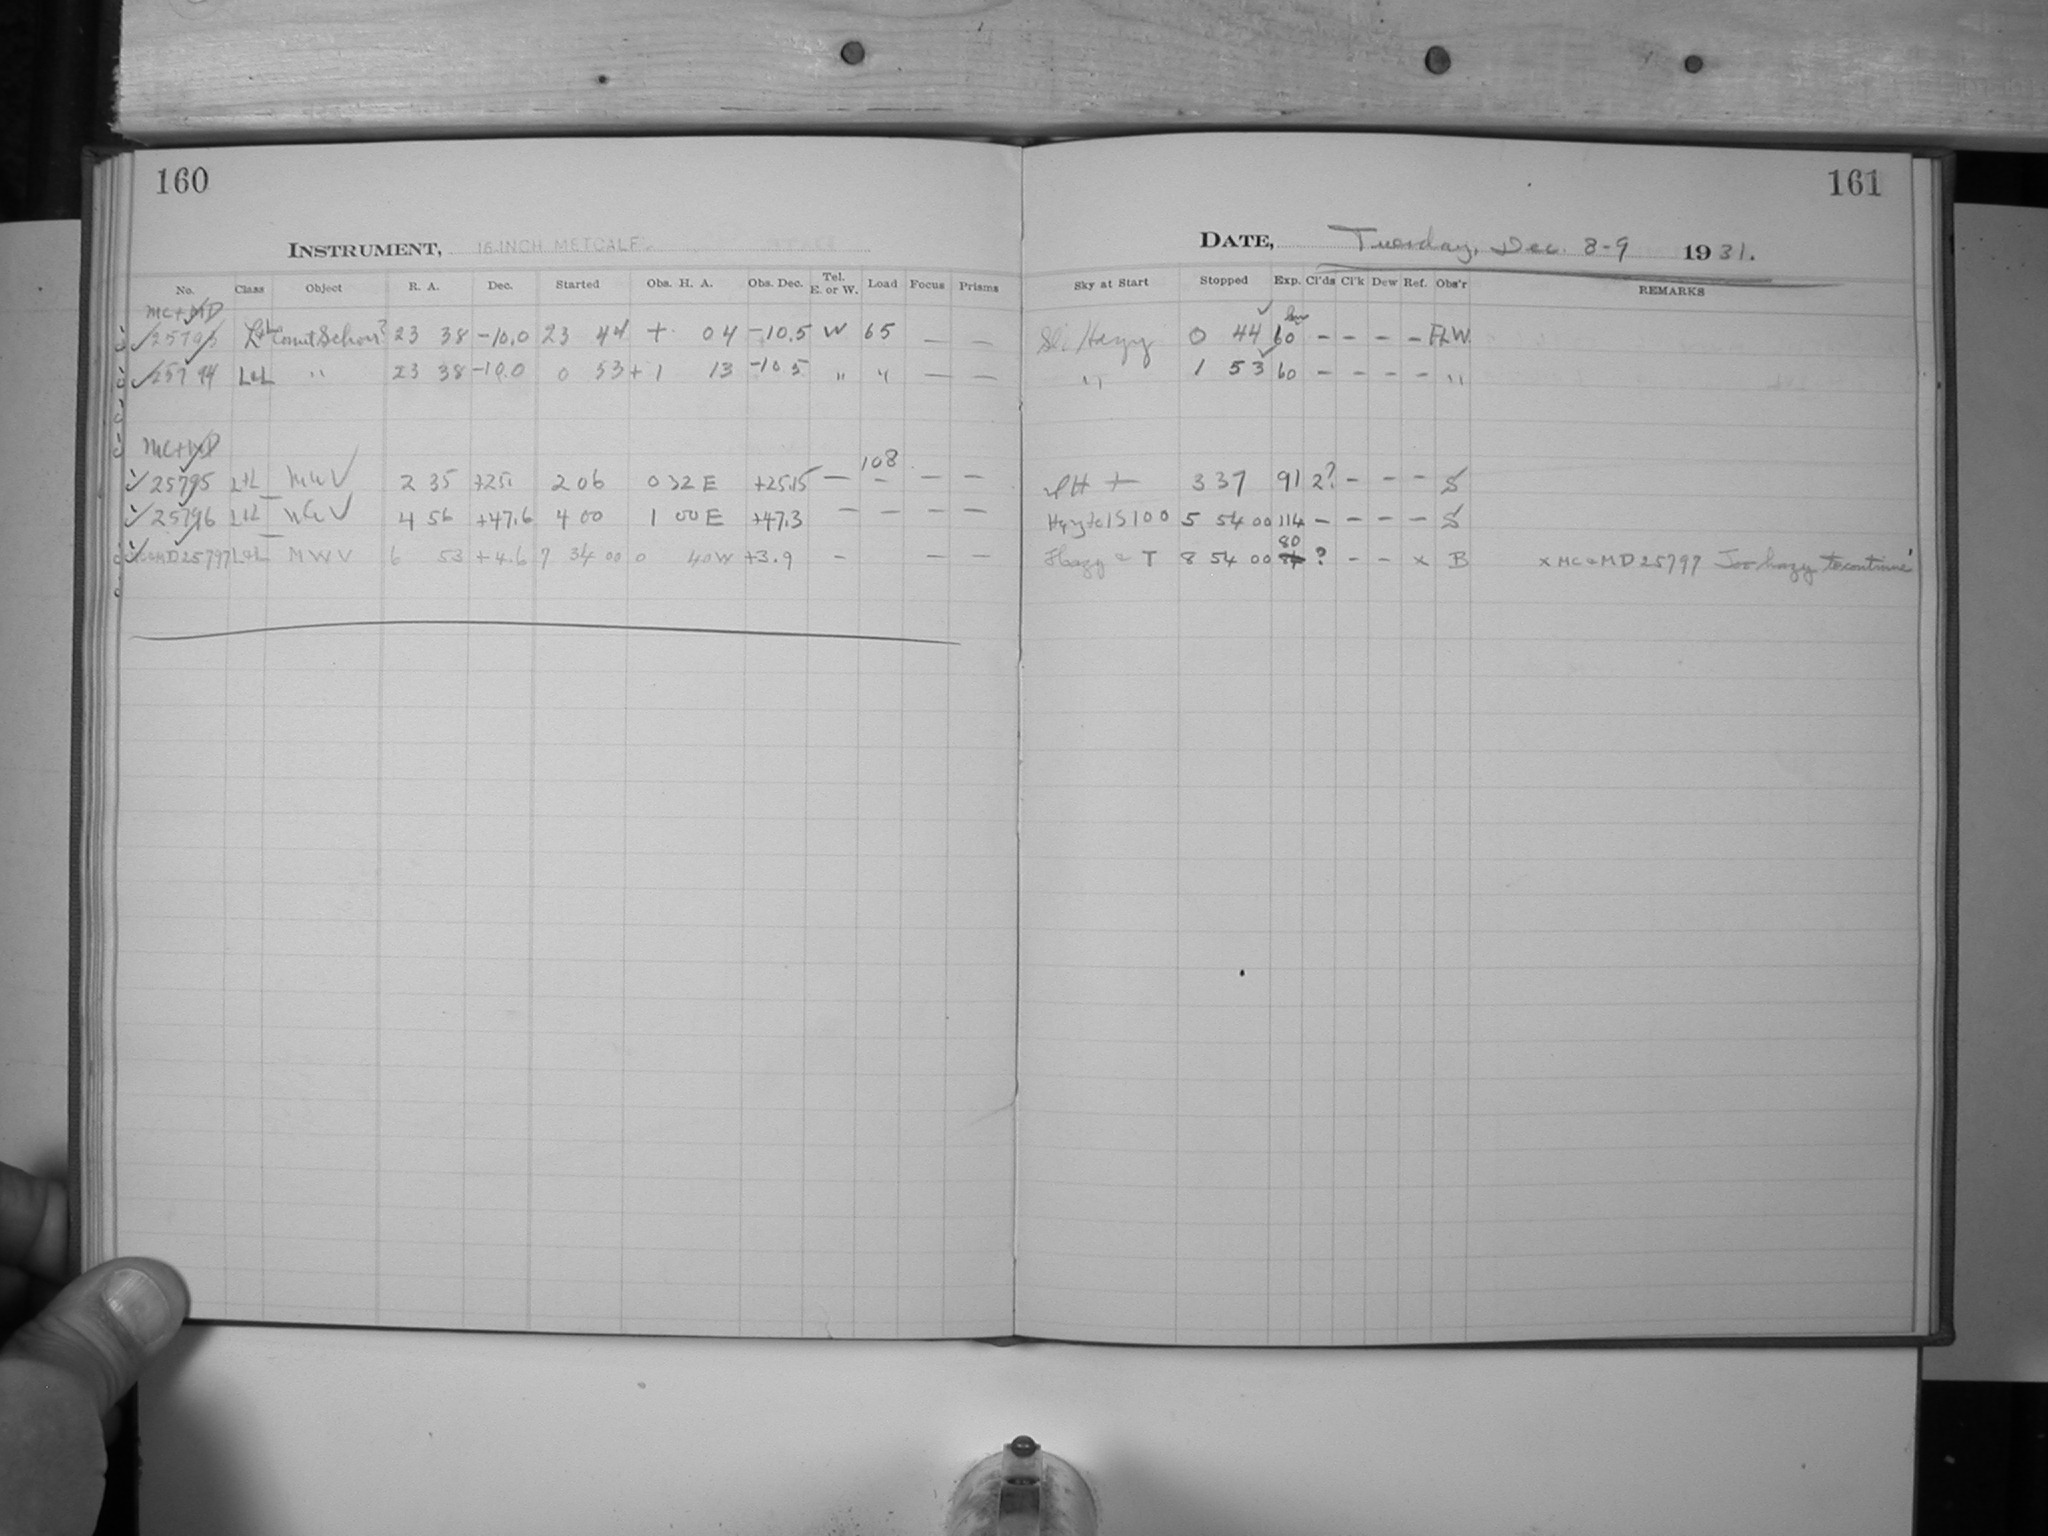 160
INSTRUMENT, 16-INCH METCALF
No. Class Object R. A. Dec. Started Obs. H. A. Obs. Dec. Tel. E. or W. Load Focus Prisms
MC+MD
25793 L+L 23 38 -10.0 23 44 + 04 -10.5 W 65 — —
25794 L+L " 23 38 -10.0 0 53 + 1 13 -10.5 " " — —
MC+MD
108
25795 L+L MWV 2 35 +25.1 2 06 0 32 E +25.15 — - — —
25796 L+L 4 56 +47.6 4 00 1 00 E +47.3 — — — —
MC&MD25797 L+L MWV 6 53 +4.6 7 34 00 0 40W +3.9 - — —
161
DATE, Tuesday, Dec. 8-9 1931.
Sky at Start Stopped Exp. Cl'ds Cl'k Dew Ref. Obs'r REMARKS
Sli Hazy 0 44 60 - - - - FLW
" 1 53 60 - - - - "
3 37 91 2? - - - S
5 54 00 114 - - - - S
80
Hazy & T 8 54 00 ? - - x B x MC&MD25797 Too hazy to continue